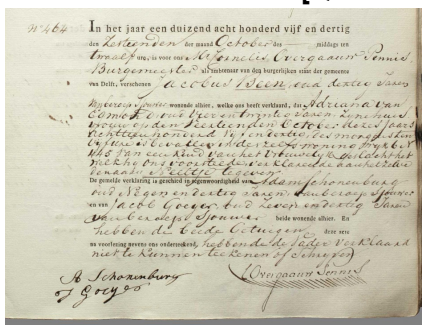 No 464
In het jaar een duizend acht honderd vijf en dertig
den zestienden der maand October des middags ten
twaalf ure, is voor ons Mr. Cornelis Overgaauw Pennis
Burgemeester als ambtenaar van den burgerlijken staat der gemeente
van Delft, verschenen Jacobus Been, oud dertig Jaren
van beroep Sjouwer wonende alhier, welke ons heeft verklaard, dat Adriana van
Egmond oud Vier en twintig Jaren, Zyne huis
vrouw op den Zestienden October dezes Jaars
Achttien honderd Vyf en dertig, des morgens ten
Vyf ure is bevallen in derzelver woning Wyk
N 45 Van een kind van het Vrouwelyk geslacht, het
welk hy ons voorsteld verklarende aan hetzelve
den naam Neeltje te geven
De gemelde verklaring is geschied in tegenwoordigheid van Adam Schonenburg
oud Negen en dertig Jaren van beroep Sjouwer
en van Jacob Goeyer, oud Zeven en dertig Jaren
van beroep Sjouwer beide wonende alhier. En
hebben de beide Getuigen deze acte
na voorlezing nevens ons onderteekend, hebbende de Vader verklaard
niet te kunnen teekenen of Schryven
A Schonenburg
J Goeyer
COvergaauw Pennis